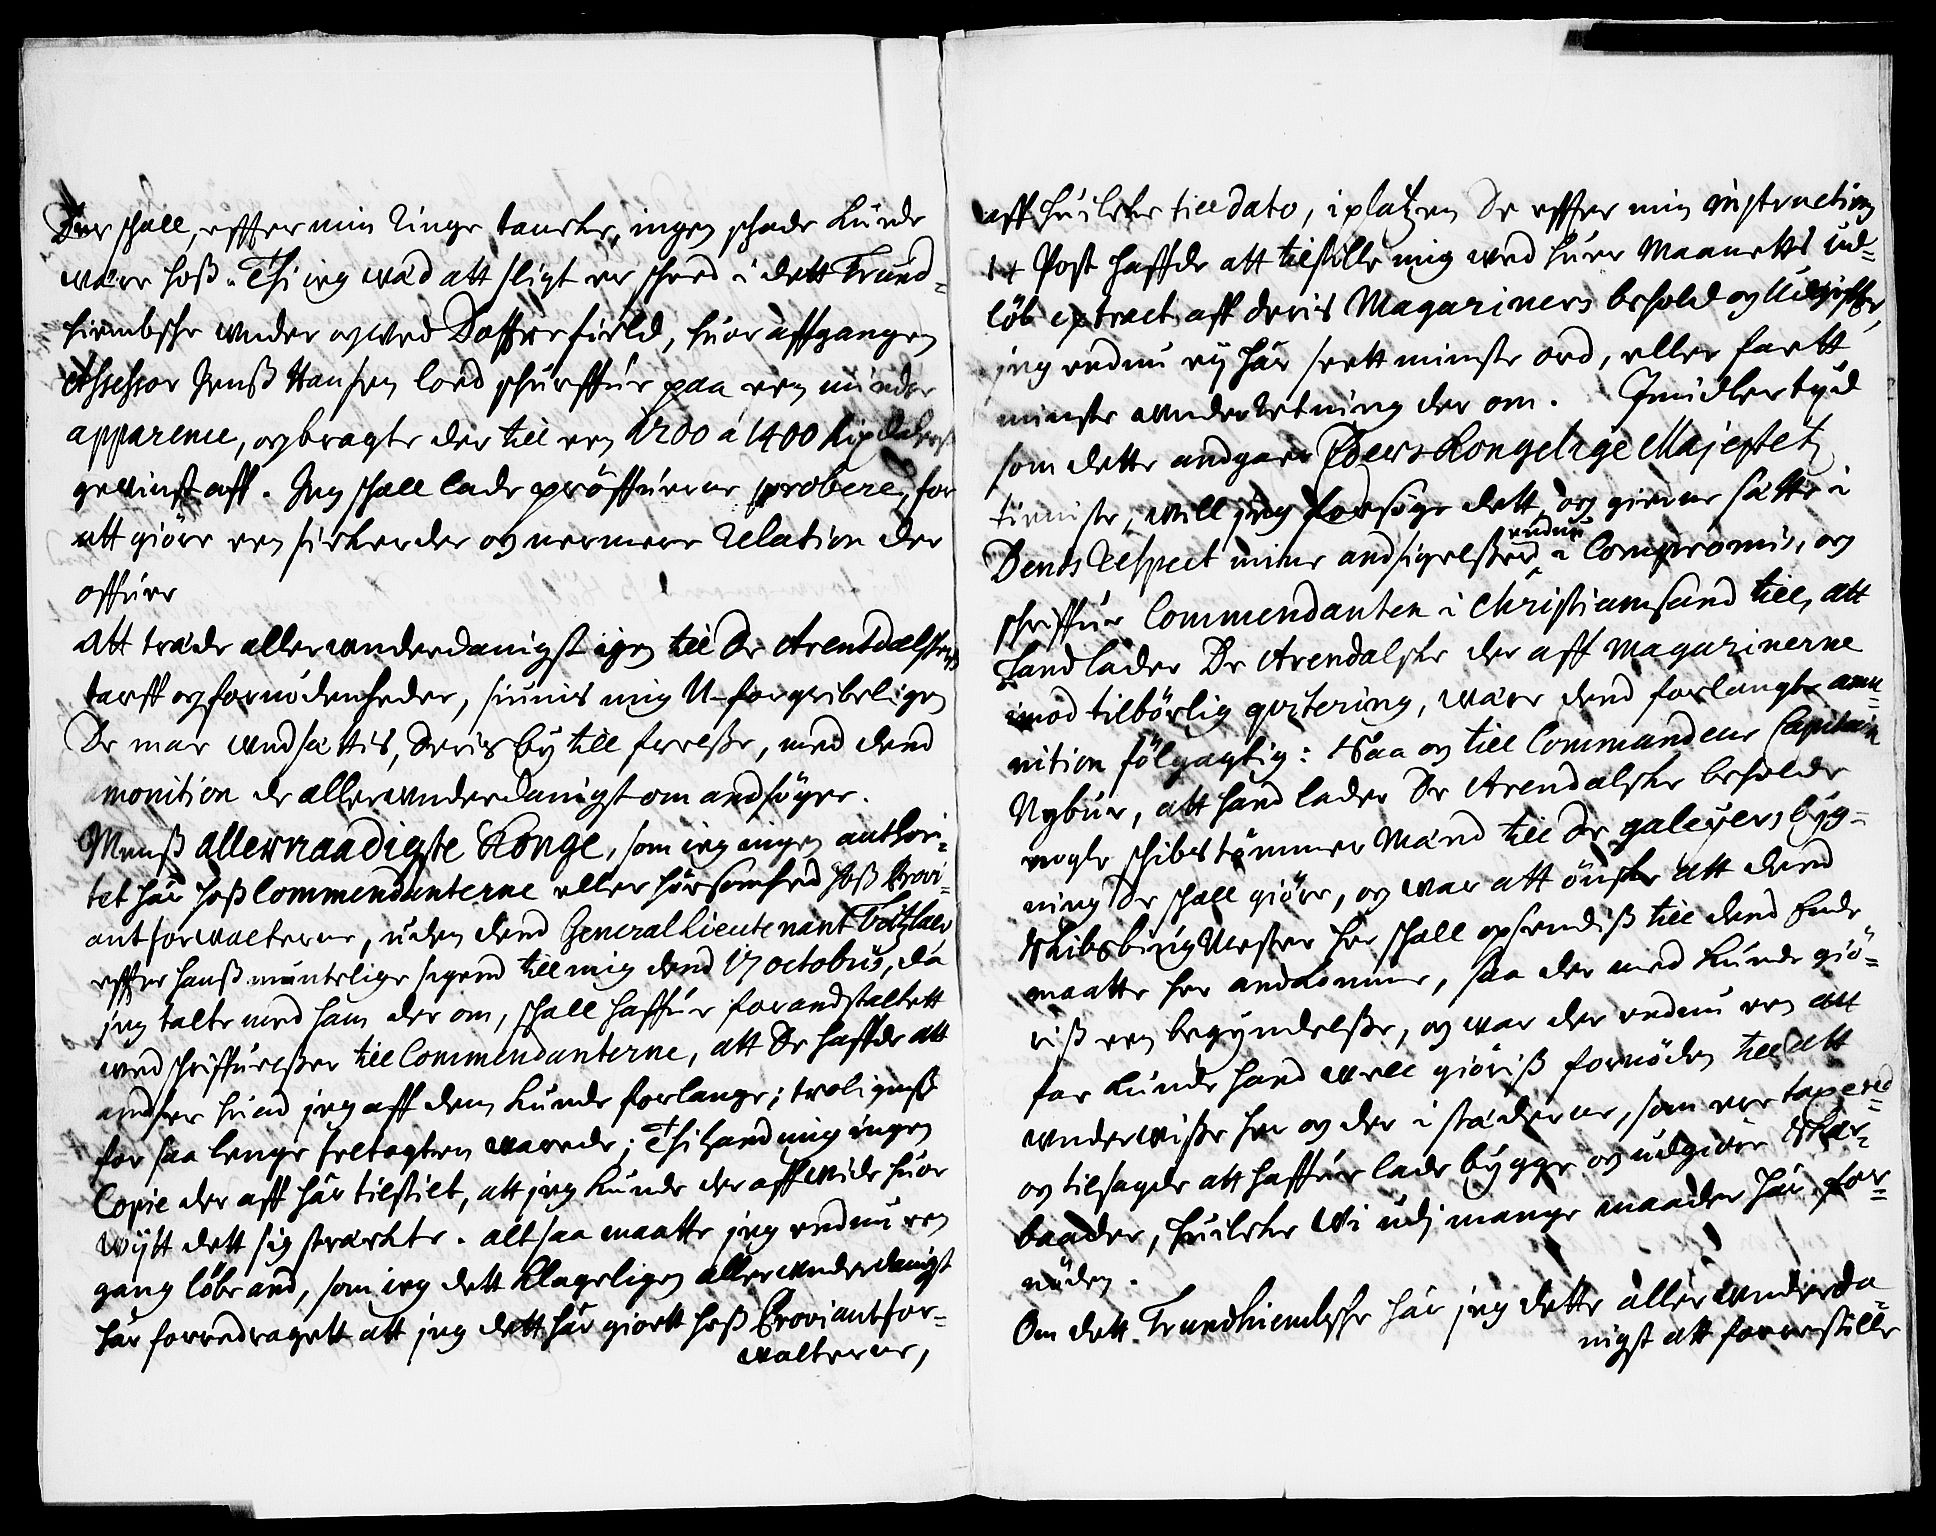 Der schall, effter min ringe tancke, ingen schade kunde
være hoß. Thi ieg wæd att sligt er scheed i dett Trund-
hiembsche under og ved Doffrefield, huor affgangen
Assessor Jenß Hansen loed schurffue paa een minder
apparence, og bragte der till een 1200 á 1400 Rixdalers
gevinst aff. Jeg schall lade prøffuerne probere, for
att giøre een sickerder og nermere relation der
offuer
Att træde allerunderdanigst igen till De Arentdalsches
tarff og fornødenheder, siunis mig U-forgribeligen
De maa undsættis, deris by till frelße, med dend
amonition de allerunderdanigst om andsøger.
Menß allernaadigste Konge, som ieg ingen authori-
tet har hoß Commendanterne eller hørsomhed hoß Provi-
antforvalterne, uden dend General Lieutenant
effter hanß muntelige sigend till mig dend 17 octobris, da
jeg talte med ham der om, schall haffue forandstaltett
ved schriffuelßer till Commendanterne, att De haffde att
andsee huad jeg aff dem kunde forlange; troligenß
for saa lenge feltogten varede; Thi hand mig ingen
Copie der aff har tilstilt, att jeg kunde der aff vide huor
vytt dett sig strackte. alt saa maatte jeg endnu een
gang løbe and, som ieg dett klageligen allerunderdanigst
har forredragett att jeg dett har giort hoß Proviantfor-
valterne,
aff huilcke till dato, i platzen De effter min instruction
14 Post haffde att tilstille mig ved huer Maanetts ud-
løb extract aff deris Magaziners behold og Udgiffter,
jeg endnu ey har seett minste ord, eller faett
minste underretning der om. Imidlertyd
som dette andgaar Eders Kongelige Majestetz
tieniste, will jeg forsøge dett, og gierne sætte i
Dends respect mine andsigelßer endnu i Compromis, og
schriffue Commendanten i Christiansand till, att
Hand lader De Arendalsche der aff magazinerne
imod tilbørlig qvitering, være dend forlangte amu-
nition følgagtig: Saa og till Commandeur Capitain
, att hand lader De Arendalsche beholde
nogle schibstømmer Mænd till De galeyers byg-
ning De schall giøre, og var att ønsche att dend
Skibsbyug Mester her schall opsendiß till dend Ende
maatte her andkomme, saa der med kunde giø-
riß een begyndelße, og var der endnu een att
faa kunde hand vell giøriß fornøden till att
underviße her og der i stæderne, som ere
og tilsagde att haffue lade bygge og udgiøre Skær-
baader, huilcke Vi udj mange maader har for-
nøden.
Om dett Trundhiembsche har jeg dette allerunderda-
nigst att forrestille